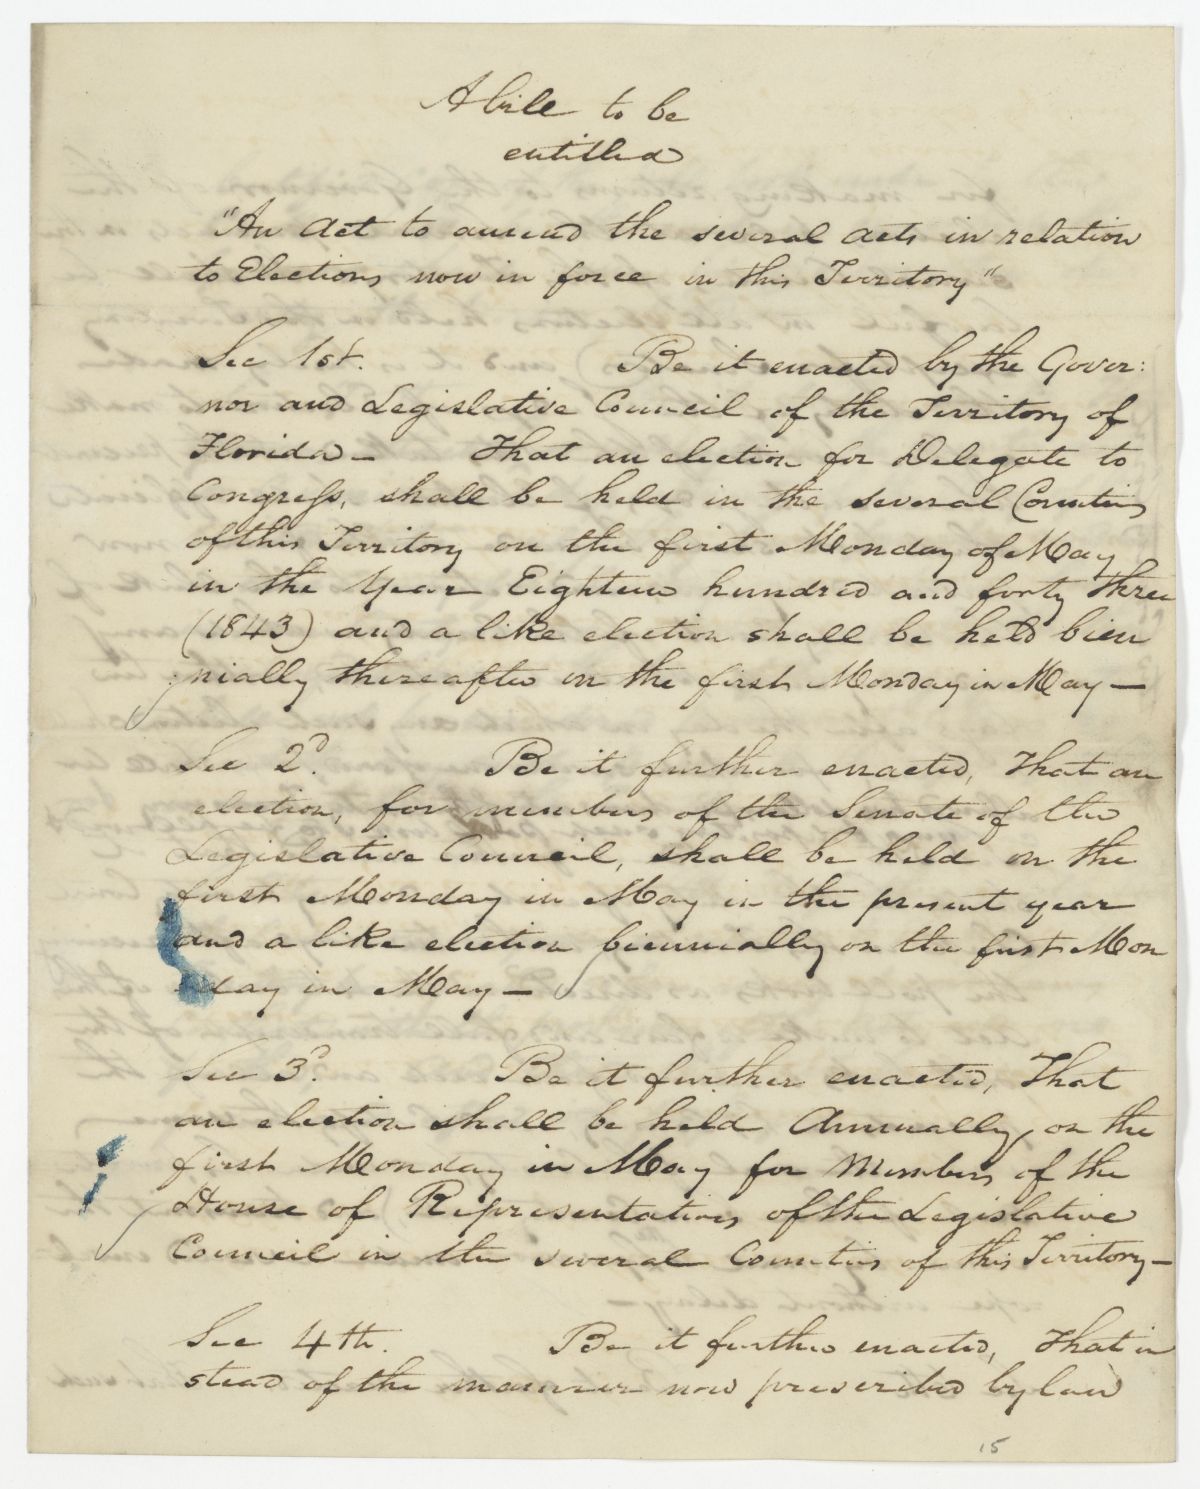 A bill to be
entitled
"An Act to amend the several acts in relation
to Elections now in force in this Territory"
Sec 1st. Be it enacted by the Gover:
nor and Legislative Council of the Territory of
Florida— That an election for Delegate to
Congress, shall be held in the several Counties
of this Territory on the first Monday of May
in the Year Eighteen hundred and forty three
(1843) and a like election shall be held bien
nially thereafter on the first Monday in May—
Sec 2d. Be it further enacted, That an
election, for members of the Senate of the
Legislative Council, shall be held on the
first Monday in May in the present year
and a like election biennially on the first Mon
day in May—
Sec 3d. Be it further enacted, That
an election shall be held Annually, on the
first Monday in May for Members of the
House of Representatives of the Legislative
Council in the several Counties of this Territory—
Sec 4th. Be it further enacted, That in
stead of the manner now prescribed by law
15